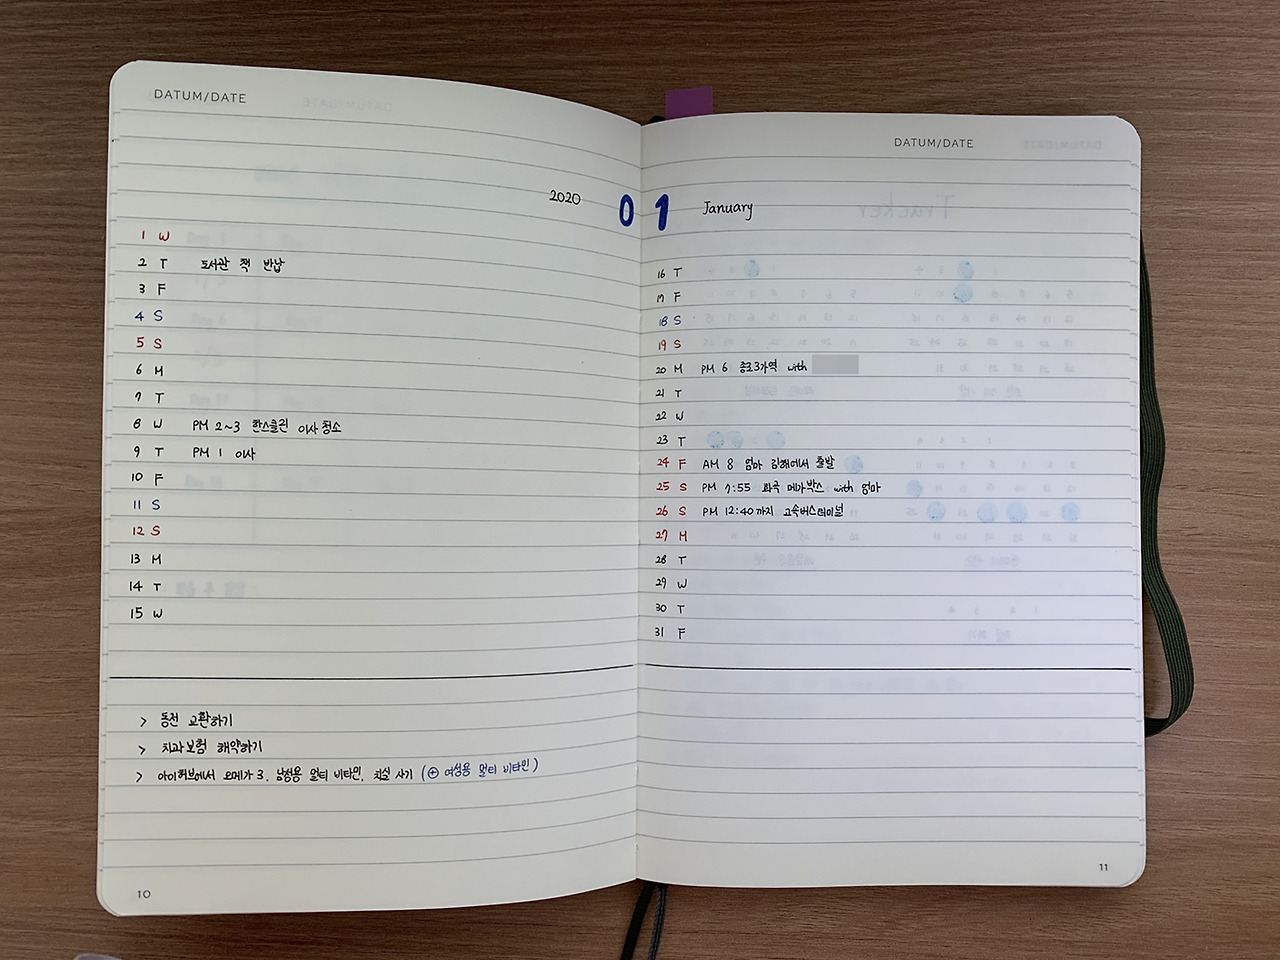 DATUM/DATE
2020 01
1 W
2 T 도서관 책 반납
3 F
4 S
5 S
6 M
7 T
8 W PM 2~3 한스클린 이사청소
9 T PM 1 이사
10 F
11 S
12 S
13 M
14 T
15 W
> 동전 교환하기
> 치과보험 해약하기
> 아이허브에서 오메가3, 남성용 멀티 비타민, 치실 사기 (⊕ 여성용 멀티 비타민)
10
DATUM/DATE
January
16 T
17 F
18 S
19 S
20 M PM 6 종로3가역 with
21 T
22 W
23 T
24 F AM 8 엄마 김해에서 출발
25 S PM 7:55 화곡 메가박스 with 엄마
26 S PM 12:40까지 고속버스터미널
27 M
28 T
29 W
30 T
31 F
11